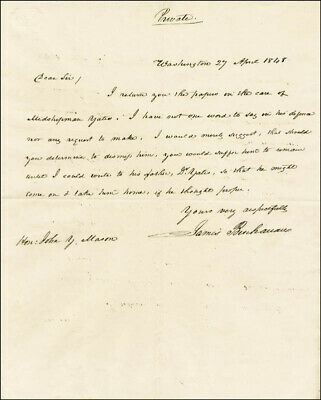 Private
Washington 27 April 1848
Dear Sir,
I return you the papers in the case of
Midshipman Yates. I have not one word to say in his defense
nor any request to make. I would merely suggest, that should
you determine to dismiss him, you would suffer him to remain
until I could write to his father, Dr. Yates, so that he might
come on & take him home, if he thought proper.
Yours very respectfully
James Buchanan
Hon: John Y. Mason